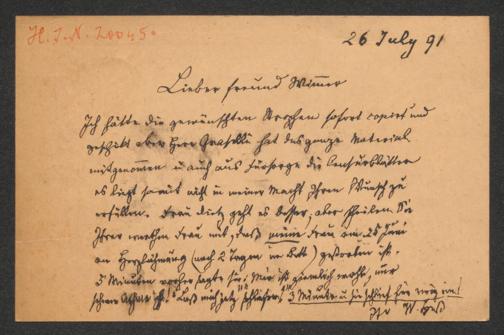 H. I. N. 20045.
26 July 91
Lieber Freund Wimmer
Ich hätte die gewünschten Strophen sofort copiert und
geschickt aber Herr Grasberger hat das ganze Material
mitgenommen u auch aus Fürsorge die Censurblätter
es liegt somit nicht in meiner Macht Ihren Wunsch zu
erfüllen. Frau geht es besser, aber theilen Sie
Ihrer werthen Frau mit, daß meine Frau am 25 Juni
an Herzlähmung (nach 2 Tagen im Bett) gestorben ist.
5 Minuten vorher sagte sie: Mir ist ziemlich wohl, nur
schwer "Laß mich jetzt schlafen", 3 Minuten u sie schlief für ewig ein!
Ihr